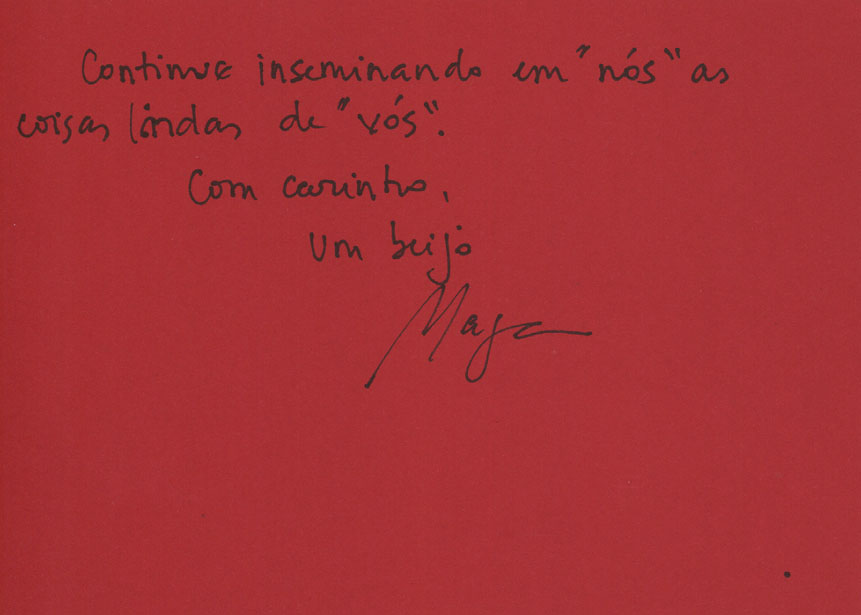 Continue inseminando em "nós" as
coisas lindas de "vós".
Com carinho,
Um beijo